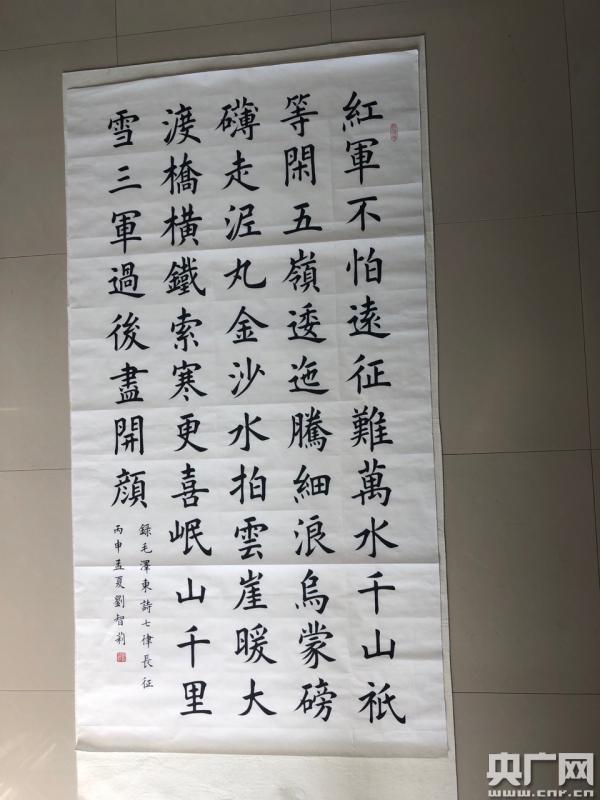 紅軍不怕遠征難萬水千山祇
等閑五嶺逶迤騰細浪烏蒙磅
礴走泥丸金沙水拍雲崖暖大
渡橋橫鐵索寒更喜岷山千里
雪三軍過後盡開顏
錄毛澤東詩七律長征
丙申孟夏劉智莉
央广网
www.cnr.cn